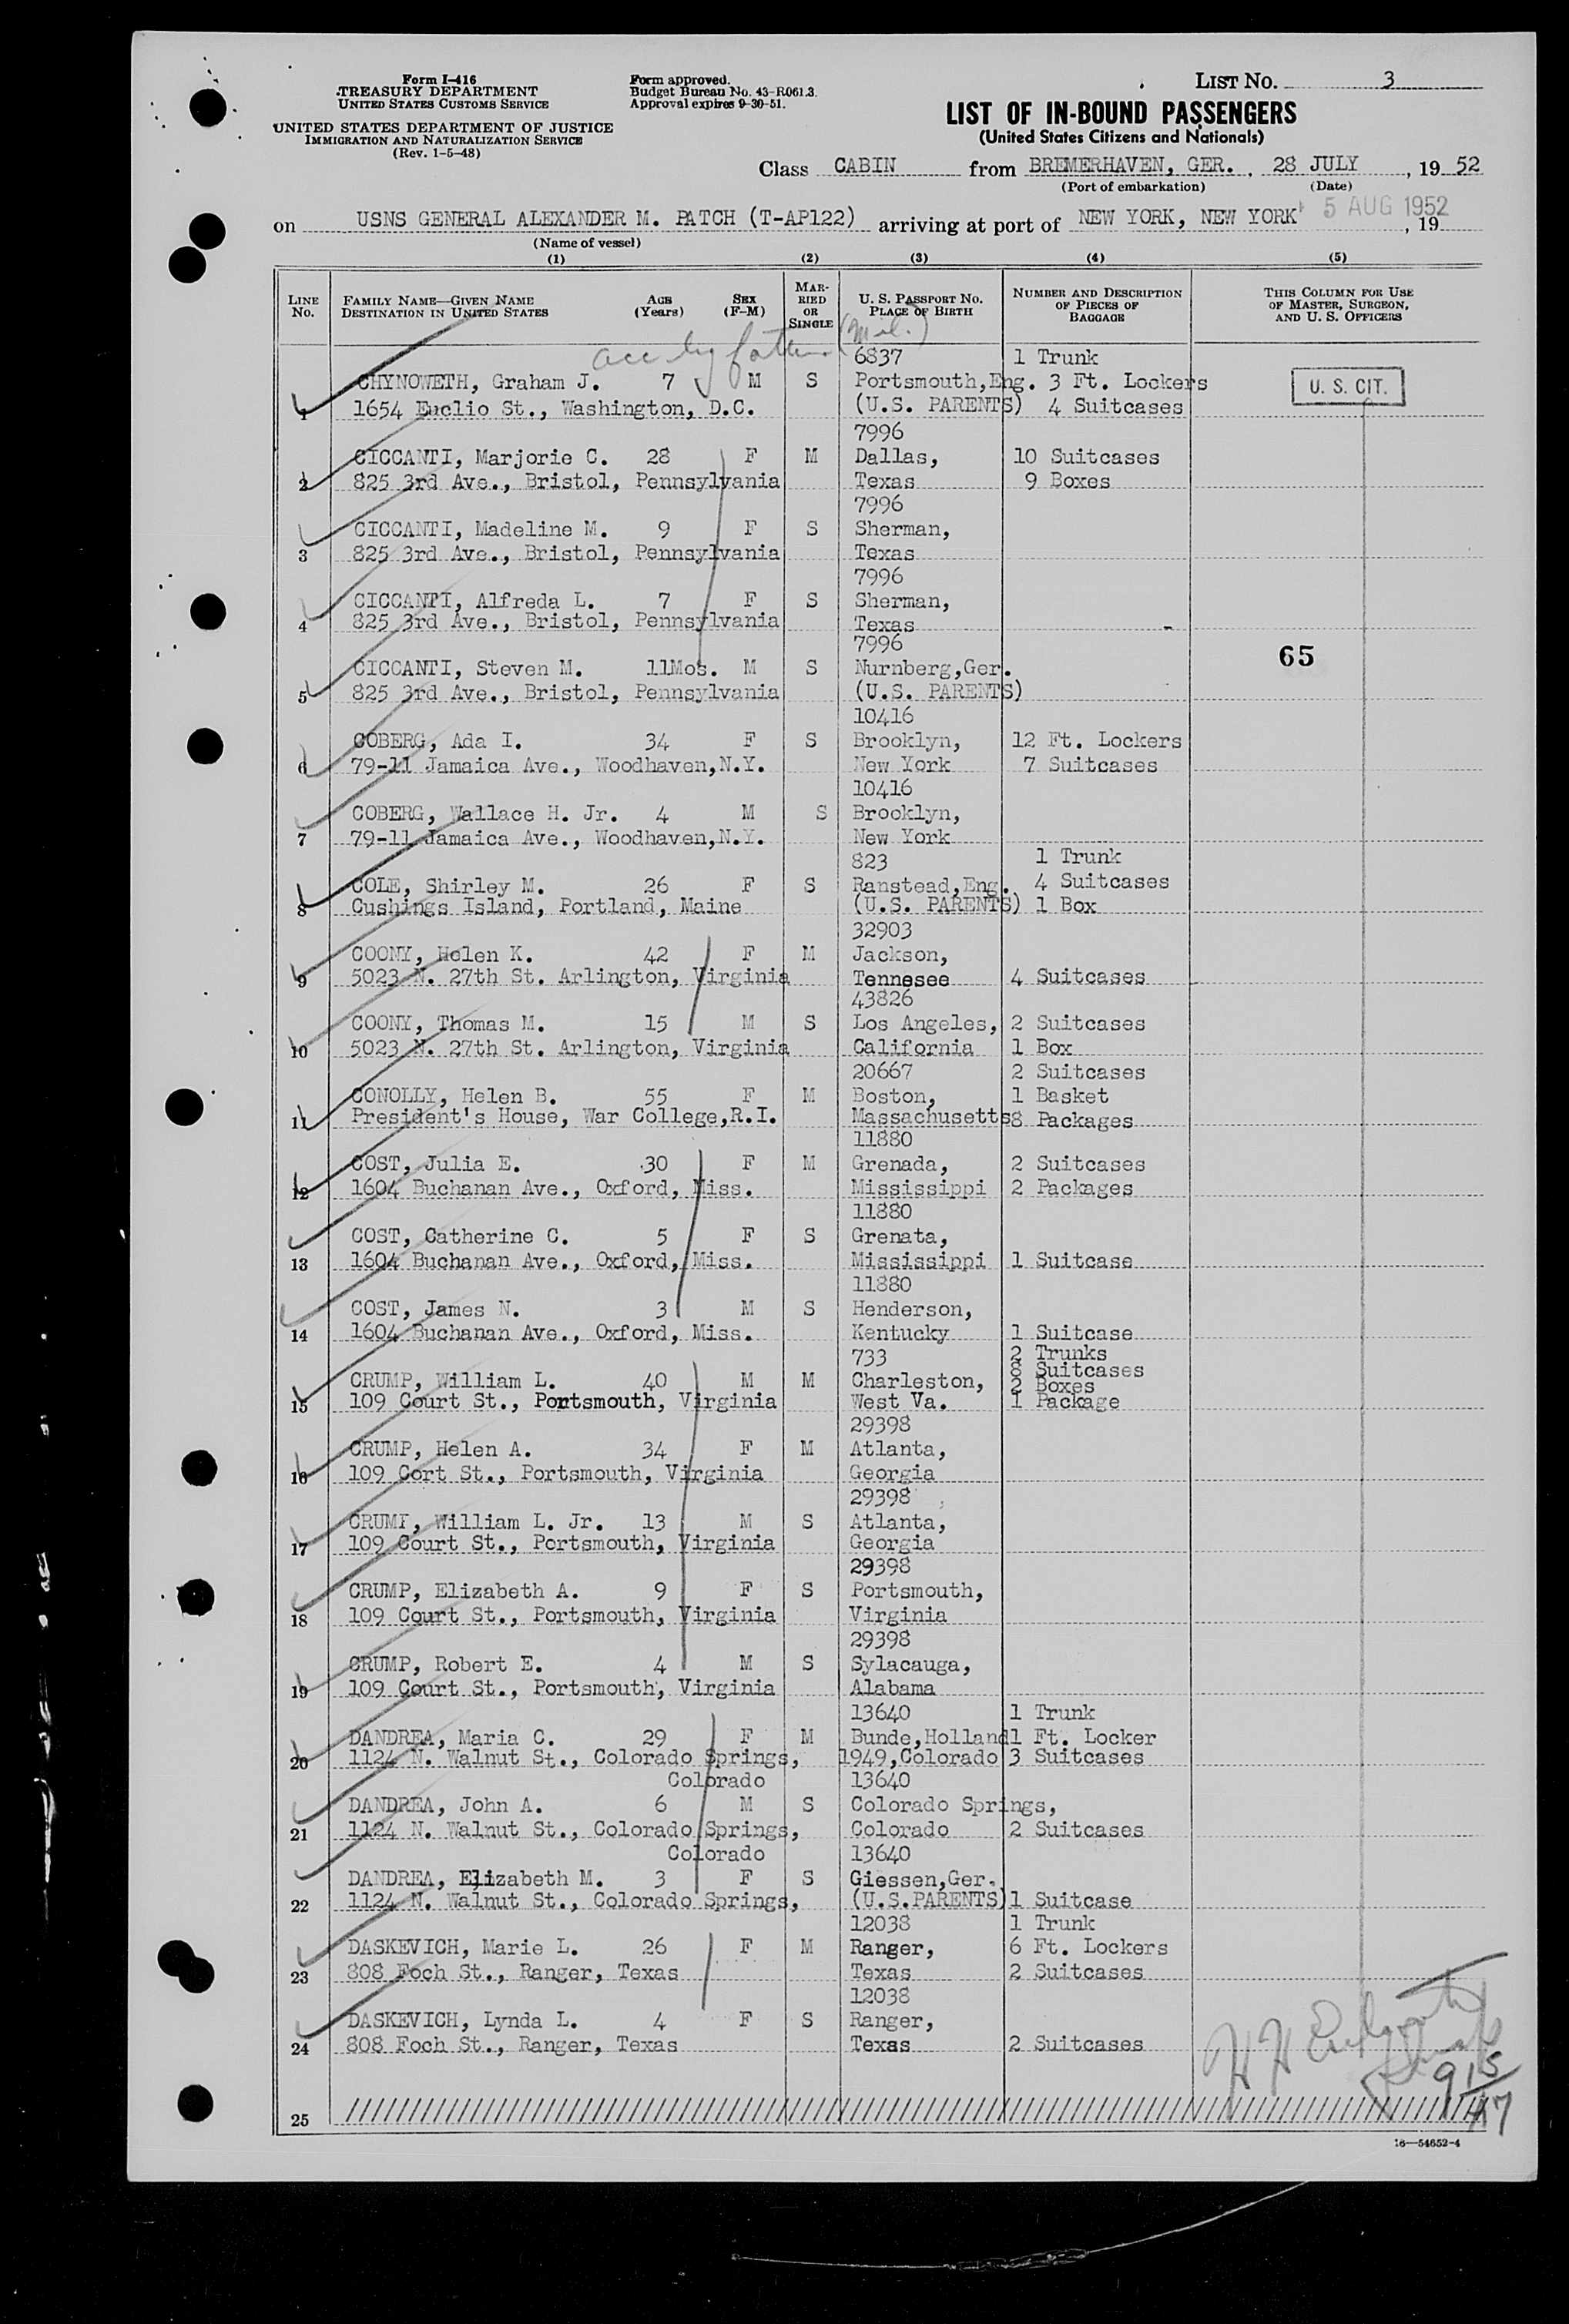 Form I-416
TREASURY DEPARTMENT
UNITED STATES CUSTOMS SERVICE
UNITED STATES DEPARTMENT OF JUSTICE
IMMIGRATION AND NATURALIZATION SERVICE
(Rev. 1-5-48)
Form approved.
Budget Bureau No. 43-R061.3.
Approval expires 9-30-51.
LIST NO. 3
LIST OF IN-BOUND PASSENGERS
(United States Citizens and Nationals)
Class CABIN from BREMERHAVEN, GER., 28 JULY, 19 52
(Port of embarkation) (Date)
on USNS GENERAL ALEXANDER M. PATCH (T-AP122) arriving at port of NEW YORK, NEW YORK 5 AUG 1952, 19
(Name of vessel)
(1) (2) (3) (4) (5)
LINE NO. FAMILY NAME—GIVEN NAME DESTINATION IN UNITED STATES AGE (Years) SEX (F-M) MARRIED OR SINGLE U. S. PASSPORT NO. PLACE OF BIRTH NUMBER AND DESCRIPTION OF PIECES OF BAGGAGE THIS COLUMN FOR USE OF MASTER, SURGEON, AND U. S. OFFICERS
acc by father (mil.)
6837 1 Trunk
CHYNOWETH, Graham J. 7 M S Portsmouth,Eng. 3 Ft. Lockers U. S. CIT.
1 1654 Euclio St., Washington, D.C. (U.S. PARENTS) 4 Suitcases
7996
CICCANTI, Marjorie C. 28 F M Dallas, 10 Suitcases
2 825 3rd Ave., Bristol, Pennsylvania Texas 9 Boxes
7996
CICCANTI, Madeline M. 9 F S Sherman,
3 825 3rd Ave., Bristol, Pennsylvania Texas
7996
CICCANTI, Alfreda L. 7 F S Sherman,
4 825 3rd Ave., Bristol, Pennsylvania Texas
7996
65
CICCANTI, Steven M. 11Mos. M S Nurnberg,Ger.
5 825 3rd Ave., Bristol, Pennsylvania (U.S. PARENTS)
10416
COBERG, Ada I. 34 F S Brooklyn, 12 Ft. Lockers
6 79-11 Jamaica Ave., Woodhaven,N.Y. New York 7 Suitcases
10416
COBERG, Wallace H. Jr. 4 M S Brooklyn,
7 79-11 Jamaica Ave., Woodhaven,N.Y. New York
823 1 Trunk
COLE, Shirley M. 26 F S Ranstead,Eng. 4 Suitcases
8 Cushings Island, Portland, Maine (U.S. PARENTS) 1 Box
32903
COONY, Helen K. 42 F M Jackson,
9 5023 N. 27th St. Arlington, Virginia Tennesee 4 Suitcases
43826
COONY, Thomas M. 15 M S Los Angeles, 2 Suitcases
10 5023 N. 27th St. Arlington, Virginia California 1 Box
20667 2 Suitcases
CONOLLY, Helen B. 55 F M Boston, 1 Basket
11 President's House, War College,R.I. Massachusetts 8 Packages
11880
COST, Julia E. 30 F M Grenada, 2 Suitcases
12 1604 Buchanan Ave., Oxford, Miss. Mississippi 2 Packages
11880
COST, Catherine C. 5 F S Grenata,
13 1604 Buchanan Ave., Oxford, Miss. Mississippi 1 Suitcase
11880
COST, James N. 3 M S Henderson,
14 1604 Buchanan Ave., Oxford, Miss. Kentucky 1 Suitcase
733 2 Trunks
8 Suitcases
CRUMP, William L. 40 M M Charleston, 2 Boxes
15 109 Court St., Portsmouth, Virginia West Va. 1 Package
29398
CRUMP, Helen A. 34 F M Atlanta,
16 109 Cort St., Portsmouth, Virginia Georgia
29398
CRUMP, William L. Jr. 13 M S Atlanta,
17 109 Court St., Portsmouth, Virginia Georgia
29398
CRUMP, Elizabeth A. 9 F S Portsmouth,
18 109 Court St., Portsmouth, Virginia Virginia
29398
CRUMP, Robert E. 4 M S Sylacauga,
19 109 Court St., Portsmouth, Virginia Alabama
13640 1 Trunk
DANDREA, Maria C. 29 F M Bunde,Holland 1 Ft. Locker
20 1124 N. Walnut St., Colorado Springs, 1949,Colorado 3 Suitcases
Colorado 13640
DANDREA, John A. 6 M S Colorado Springs,
21 1124 N. Walnut St., Colorado Springs, Colorado 2 Suitcases
Colorado 13640
DANDREA, Elizabeth M. 3 F S Giessen,Ger.
22 1124 N. Walnut St., Colorado Springs, (U.S.PARENTS) 1 Suitcase
12038 1 Trunk
DASKEVICH, Marie L. 26 F M Ranger, 6 Ft. Lockers
23 808 Foch St., Ranger, Texas Texas 2 Suitcases
12038
DASKEVICH, Lynda L. 4 F S Ranger,
24 808 Foch St., Ranger, Texas Texas 2 Suitcases
25
16—54652-4